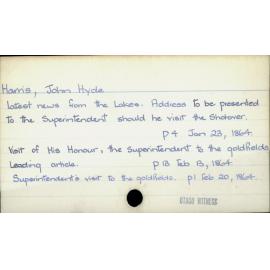 Harris, John Hyde
Latest news from the Lakes. Address to be presented
to the Superintendent should he visit the Shotover.
p4 Jan 23, 1864.
Visit of His Honour, the Superintendent to the goldfields
Leading article. p13 Feb 13, 1864.
Superintendent's visit to the goldfields. p1 Feb 20, 1864.
OTAGO WITNESS